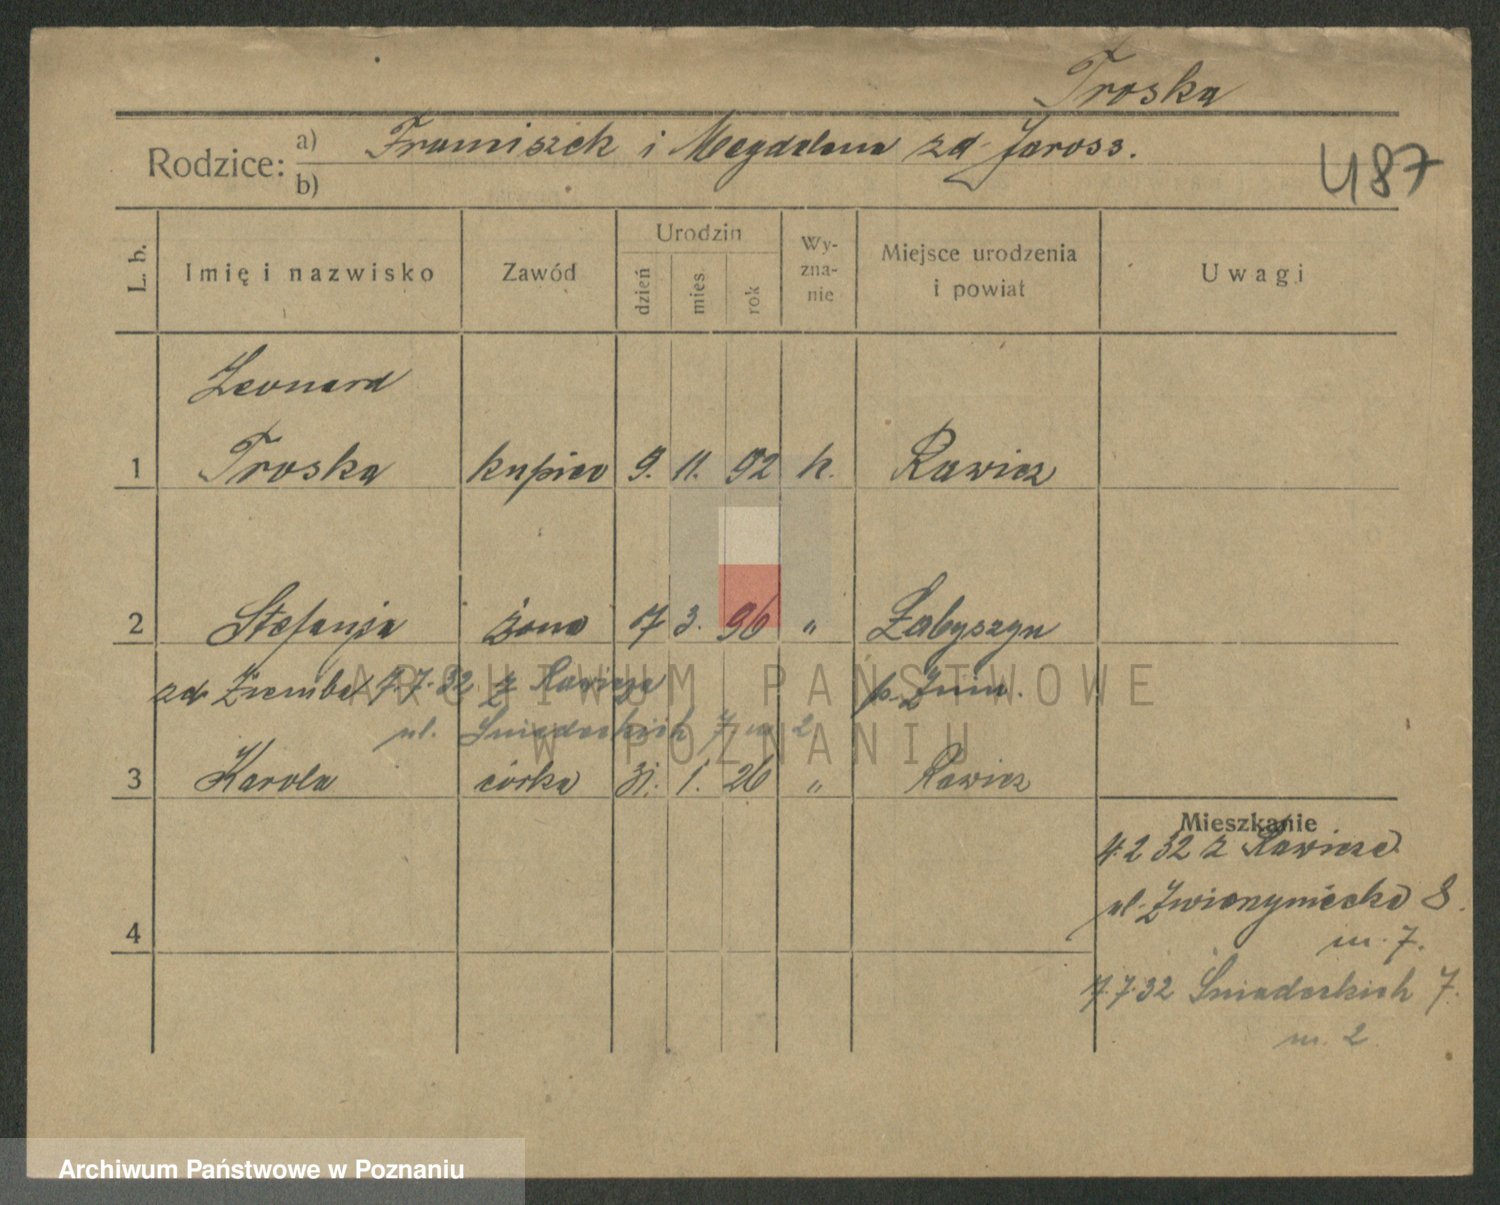 Troska
Rodzice: a) Franciszek i Magdalena zd. Jaross.
b)
487
L. b.
Imię i nazwisko
Zawód
Urodzin
dzień
mies.
rok
Wy-
zna-
nie
Miejsce urodzenia
i powiat
Uwagi
Leonard
1 Troska kupiec 9. 11. 92 k. Rawicz
2 Stefanja żona 7 3. 96 " Łabyszyn
zd. Ziemba 7.7.32 z Rawicza p. Żnin.
ul. Śniadeckich 7 m 2
3 Karola córka 31. 1. 26 " Rawicz
Mieszkanie
4.2 32 z Rawicza
ul. Zwierzyniecka 8.
m. 7.
4
7.7.32 Śniadeckich 7.
m. 2
ARCHIWUM PAŃSTWOWE
W POZNANIU
Archiwum Państwowe w Poznaniu